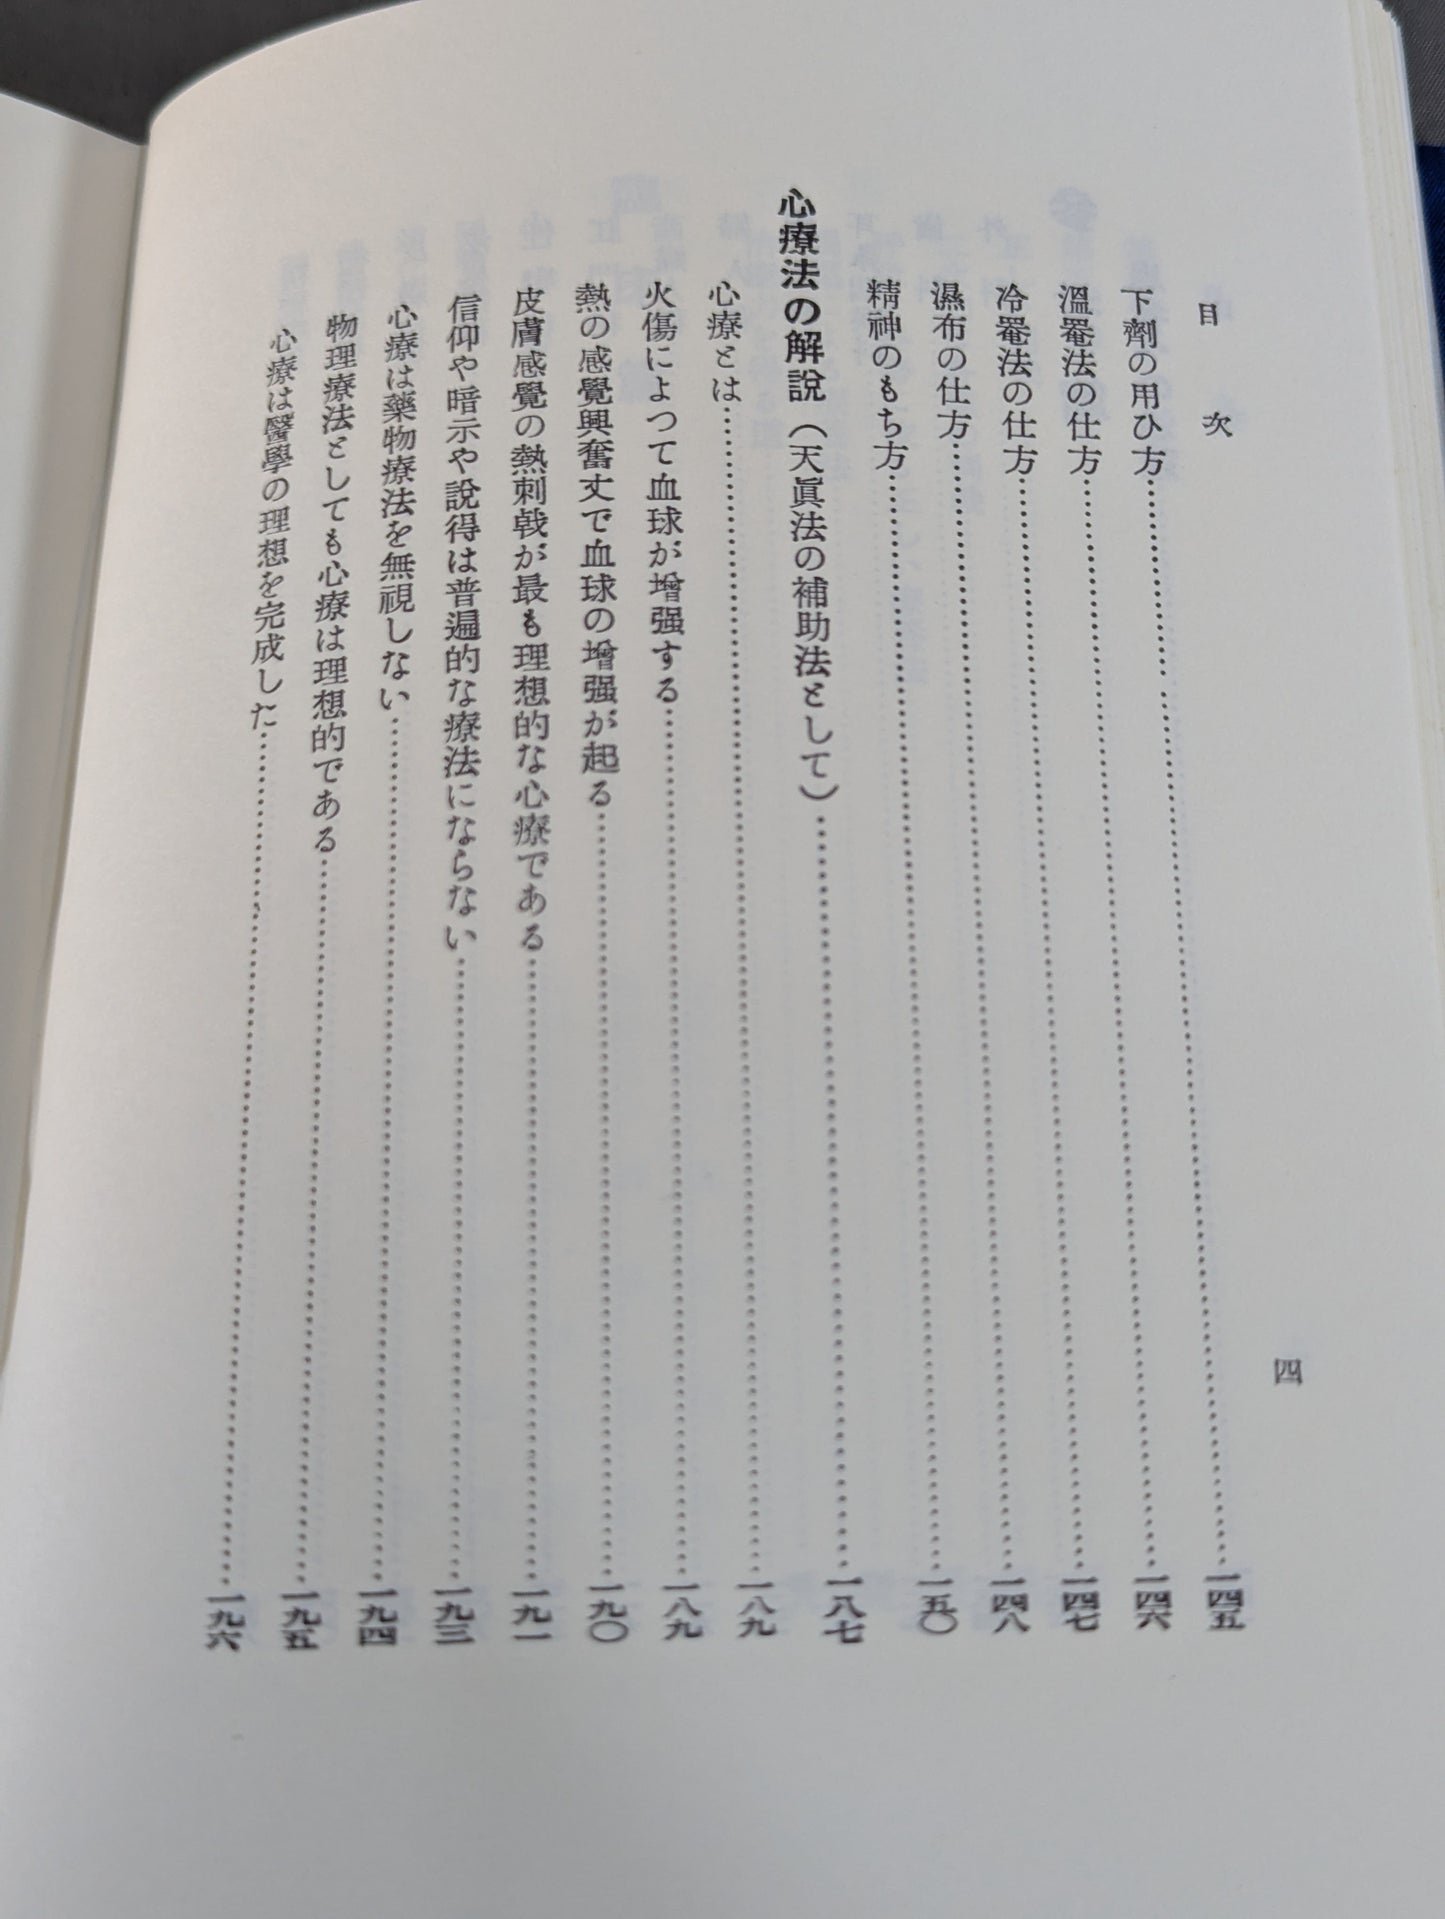 目次
四
下劑の用ひ方……一四五
溫罨法の仕方……一四六
冷罨法の仕方……一四七
濕布の仕方……一四八
精神のもち方……一五〇
心療法の解說（天眞法の補助法として）……一八七
心療とは……一八九
火傷によつて血球が增强する……一八九
熱の感覺興奮丈で血球の增强が起る……一九〇
皮膚感覺の熱刺戟が最も理想的な心療である……一九一
信仰や暗示や說得は普遍的な療法にならない……一九三
心療は藥物療法を無視しない……一九四
物理療法としても心療は理想的である……一九五
心療は醫學の理想を完成した……一九六